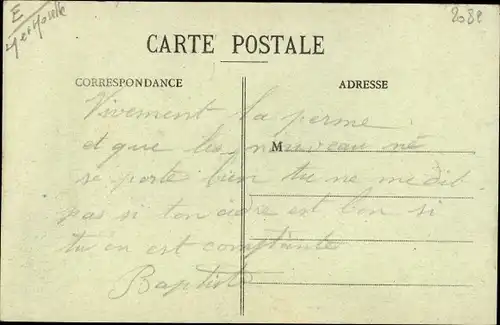 E
2082
CARTE POSTALE
CORRESPONDANCE
ADRESSE
Vivement la perme
et que les nouveau né
M
se porte bien tu ne me dit
pas si ton cidre est bon si
tu en est comptante
Baptiste